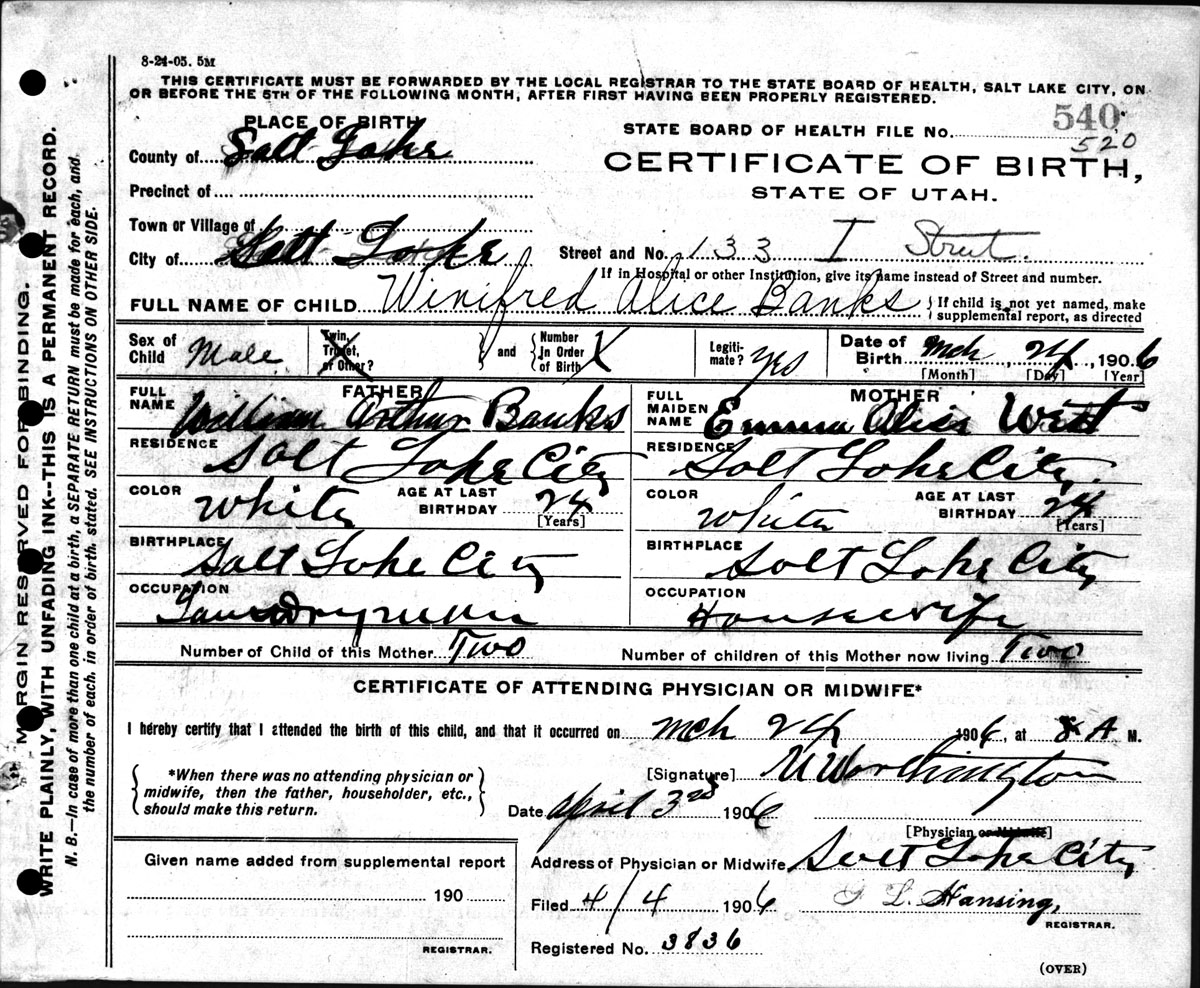 8-24-05. 5M
THIS CERTIFICATE MUST BE FORWARDED BY THE LOCAL REGISTRAR TO THE STATE BOARD OF HEALTH, SALT LAKE CITY, ON
OR BEFORE THE 5TH OF THE FOLLOWING MONTH, AFTER FIRST HAVING BEEN PROPERLY REGISTERED.
MARGIN RESERVED FOR BINDING.
WRITE PLAINLY, WITH UNFADING INK--THIS IS A PERMANENT RECORD.
N. B.—In case of more than one child at a birth, a SEPARATE RETURN must be made for each, and
the number of each, in order of birth, stated. SEE INSTRUCTIONS ON OTHER SIDE.
PLACE OF BIRTH
County of Salt Lake
Precinct of
Town or Village of
City of Salt Lake
540
STATE BOARD OF HEALTH FILE No. 520
CERTIFICATE OF BIRTH,
STATE OF UTAH.
Street and No. 133 I Street.
If in Hospital or other Institution, give its name instead of Street and number.
FULL NAME OF CHILD Winifred Alice Banks {If child is not yet named, make
supplemental report, as directed
Sex of Child Male
Twin, Triplet, or Other? } and { Number In Order of Birth X
Legiti-mate? yes
Date of Birth Mch 24, 1906
[Month] [Day] [Year]
FATHER
FULL NAME William Arthur Banks
RESIDENCE Salt Lake City
COLOR White AGE AT LAST BIRTHDAY 24
[Years]
BIRTHPLACE Salt Lake City
OCCUPATION Laundryman
MOTHER
FULL MAIDEN NAME Emma Alice Witt
RESIDENCE Salt Lake City
COLOR White AGE AT LAST BIRTHDAY 24
[Years]
BIRTHPLACE Salt Lake City
OCCUPATION Housewife
Number of Child of this Mother Two Number of children of this Mother now living Two
CERTIFICATE OF ATTENDING PHYSICIAN OR MIDWIFE*
I hereby certify that I attended the birth of this child, and that it occurred on Mch 24 1906, at 8 A M.
{*When there was no attending physician or
midwife, then the father, householder, etc.,
should make this return.}
[Signature] Worthington
Date April 3rd 1906
[Physician or Midwife]
Given name added from supplemental report
190
REGISTRAR.
Address of Physician or Midwife Salt Lake City
Filed 4/4 1906 L. Hansing,
REGISTRAR.
Registered No. 3836
(OVER)